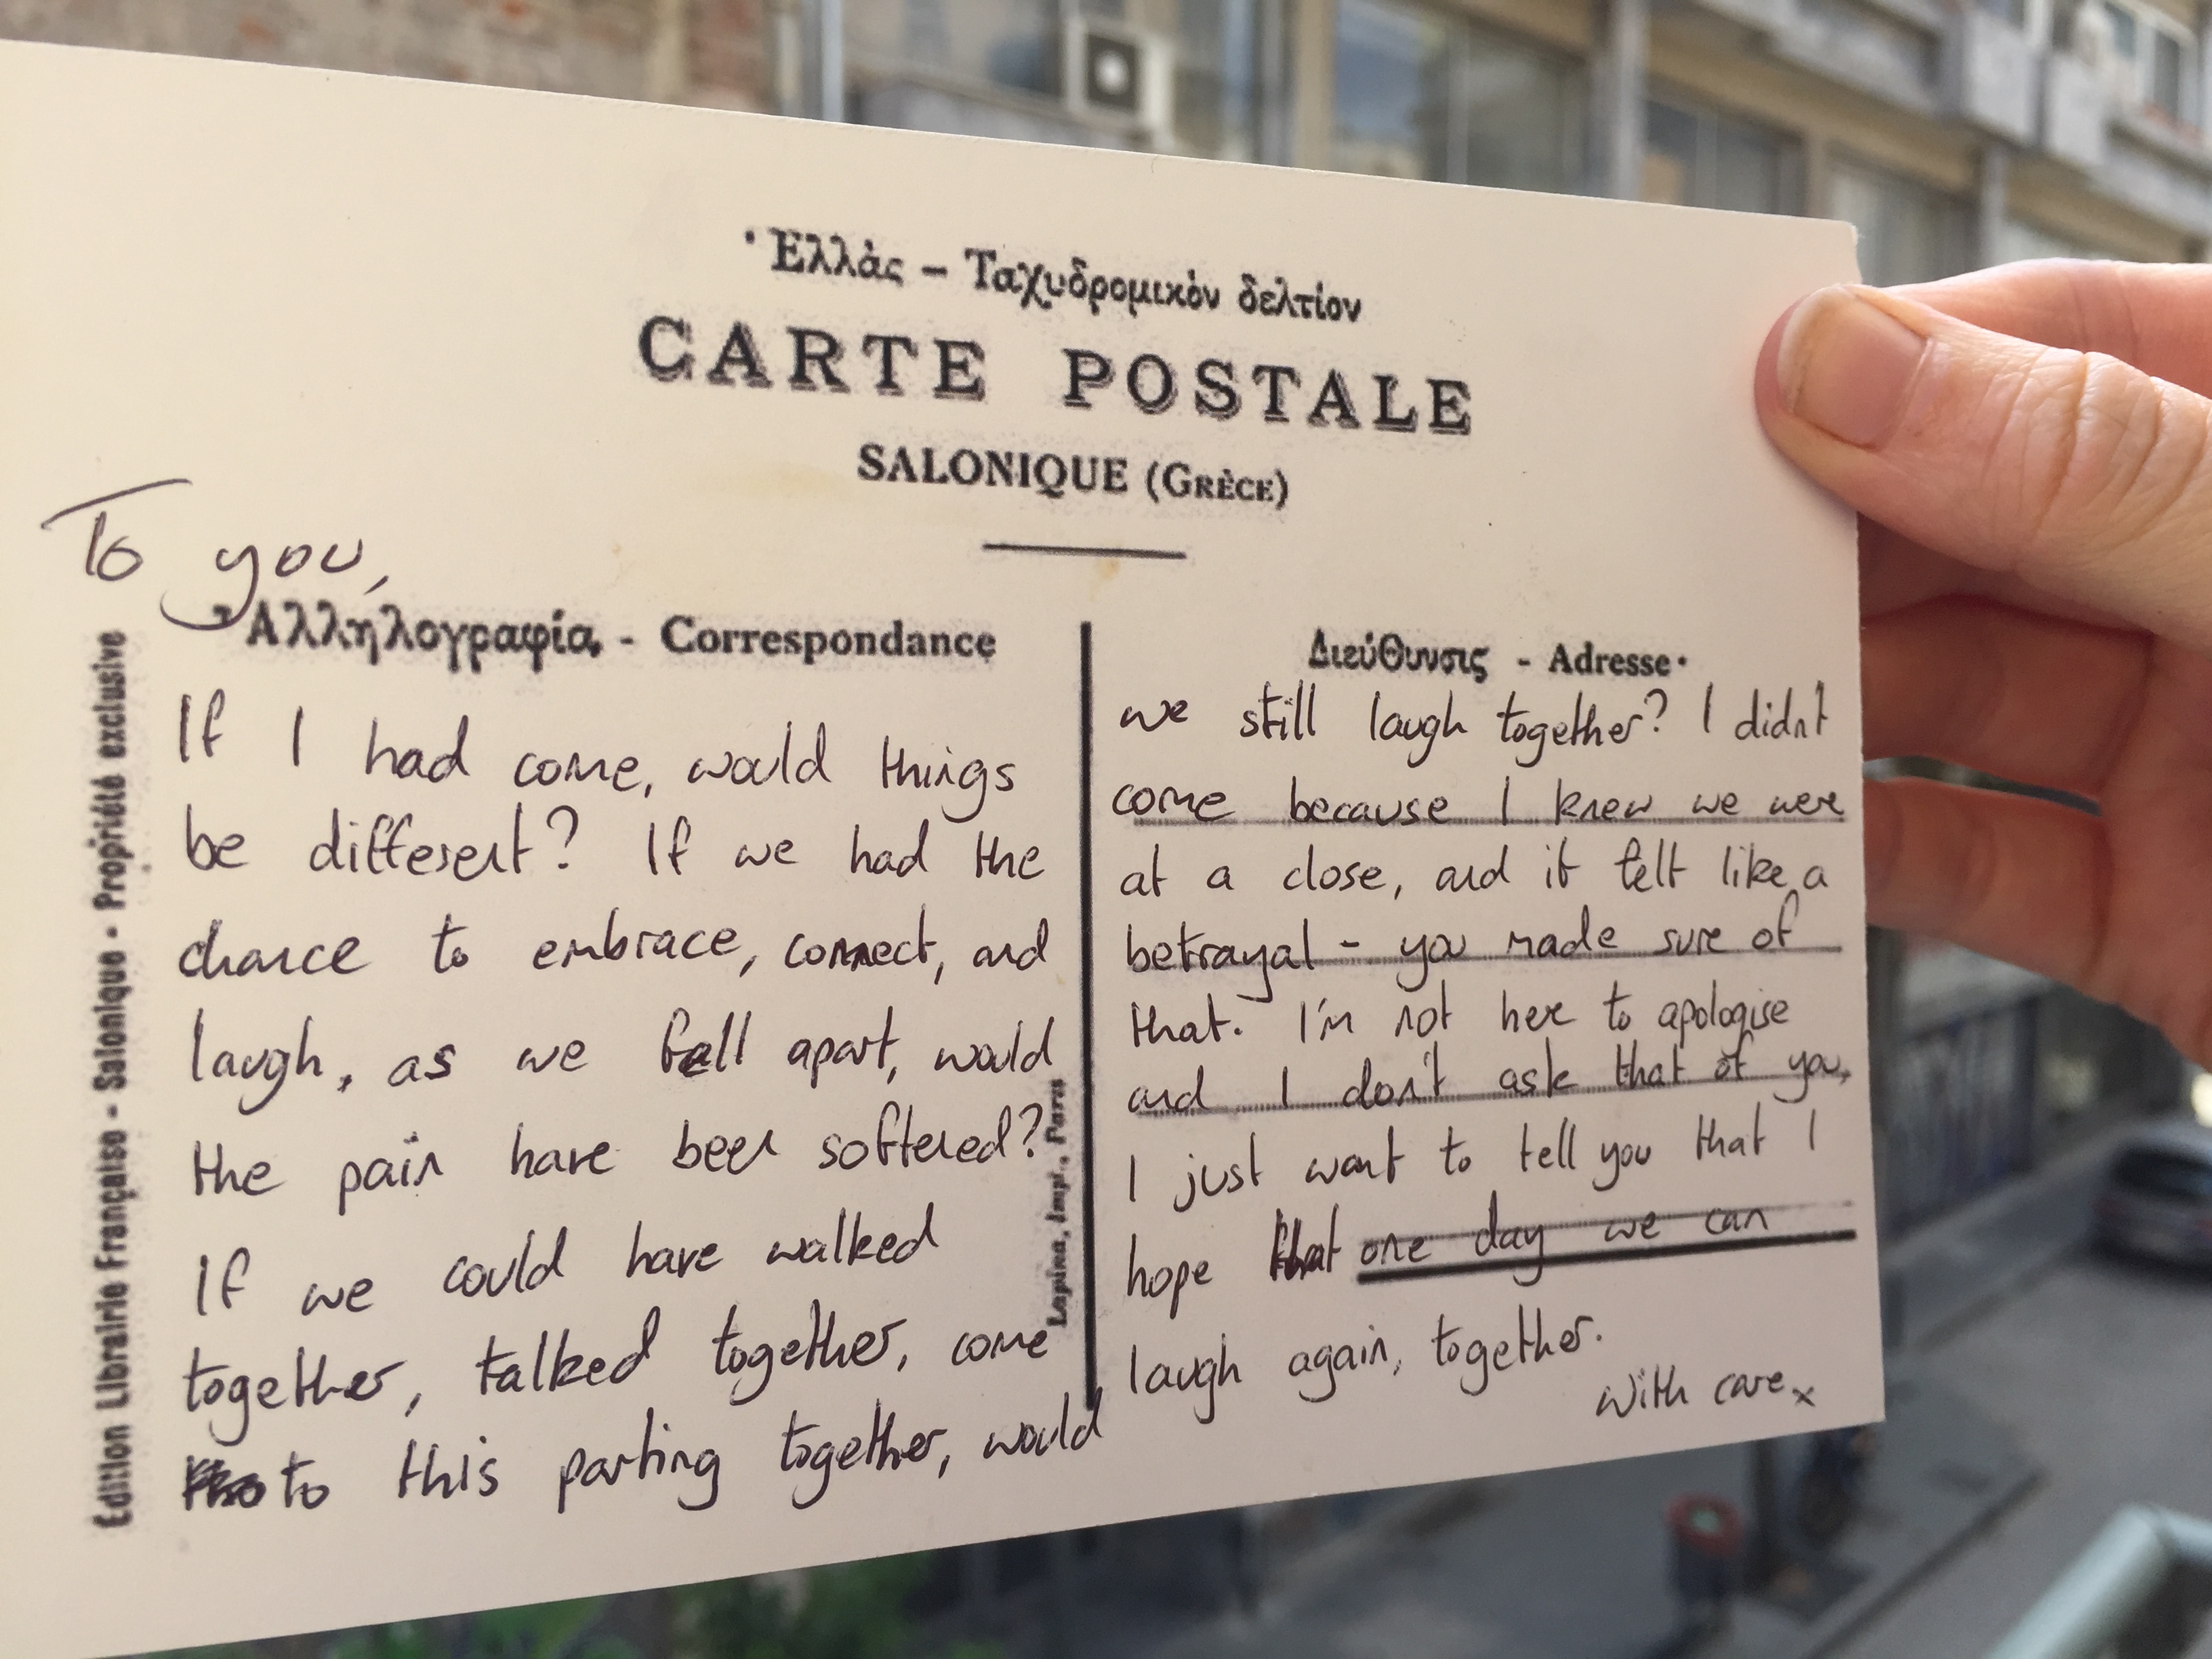 Ἑλλὰς – Ταχυδρομικὸν δελτίον
CARTE POSTALE
SALONIQUE (GRÈCE)
To you,
Ἀλληλογραφία - Correspondance
If I had come, would things
be different? If we had the
chance to embrace, connect, and
laugh, as we fall apart, would
the pain have been softened?
If we could have walked
together, talked together, come
to this parting together, would
Διεύθυνσις - Adresse
we still laugh together? I didn't
come because I knew we were
at a close, and it felt like a
betrayal - you made sure of
that. I'm not here to apologise
and I don't ask that of you,
I just want to tell you that I
hope that one day we can
laugh again, together.
With care x
Edition Librairie Française - Salonique - Propriété exclusive
Lapina, Imp., Paris